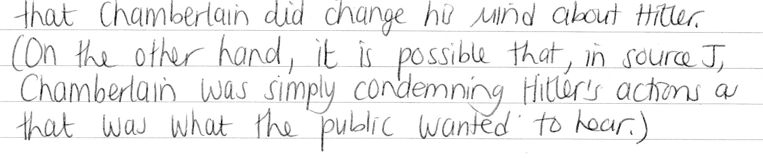 that Chamberlain did change his mind about Hitler.
(On the other hand, it is possible that, in source J,
Chamberlain was simply condemning Hitler's actions as
that was what the public wanted to hear.)